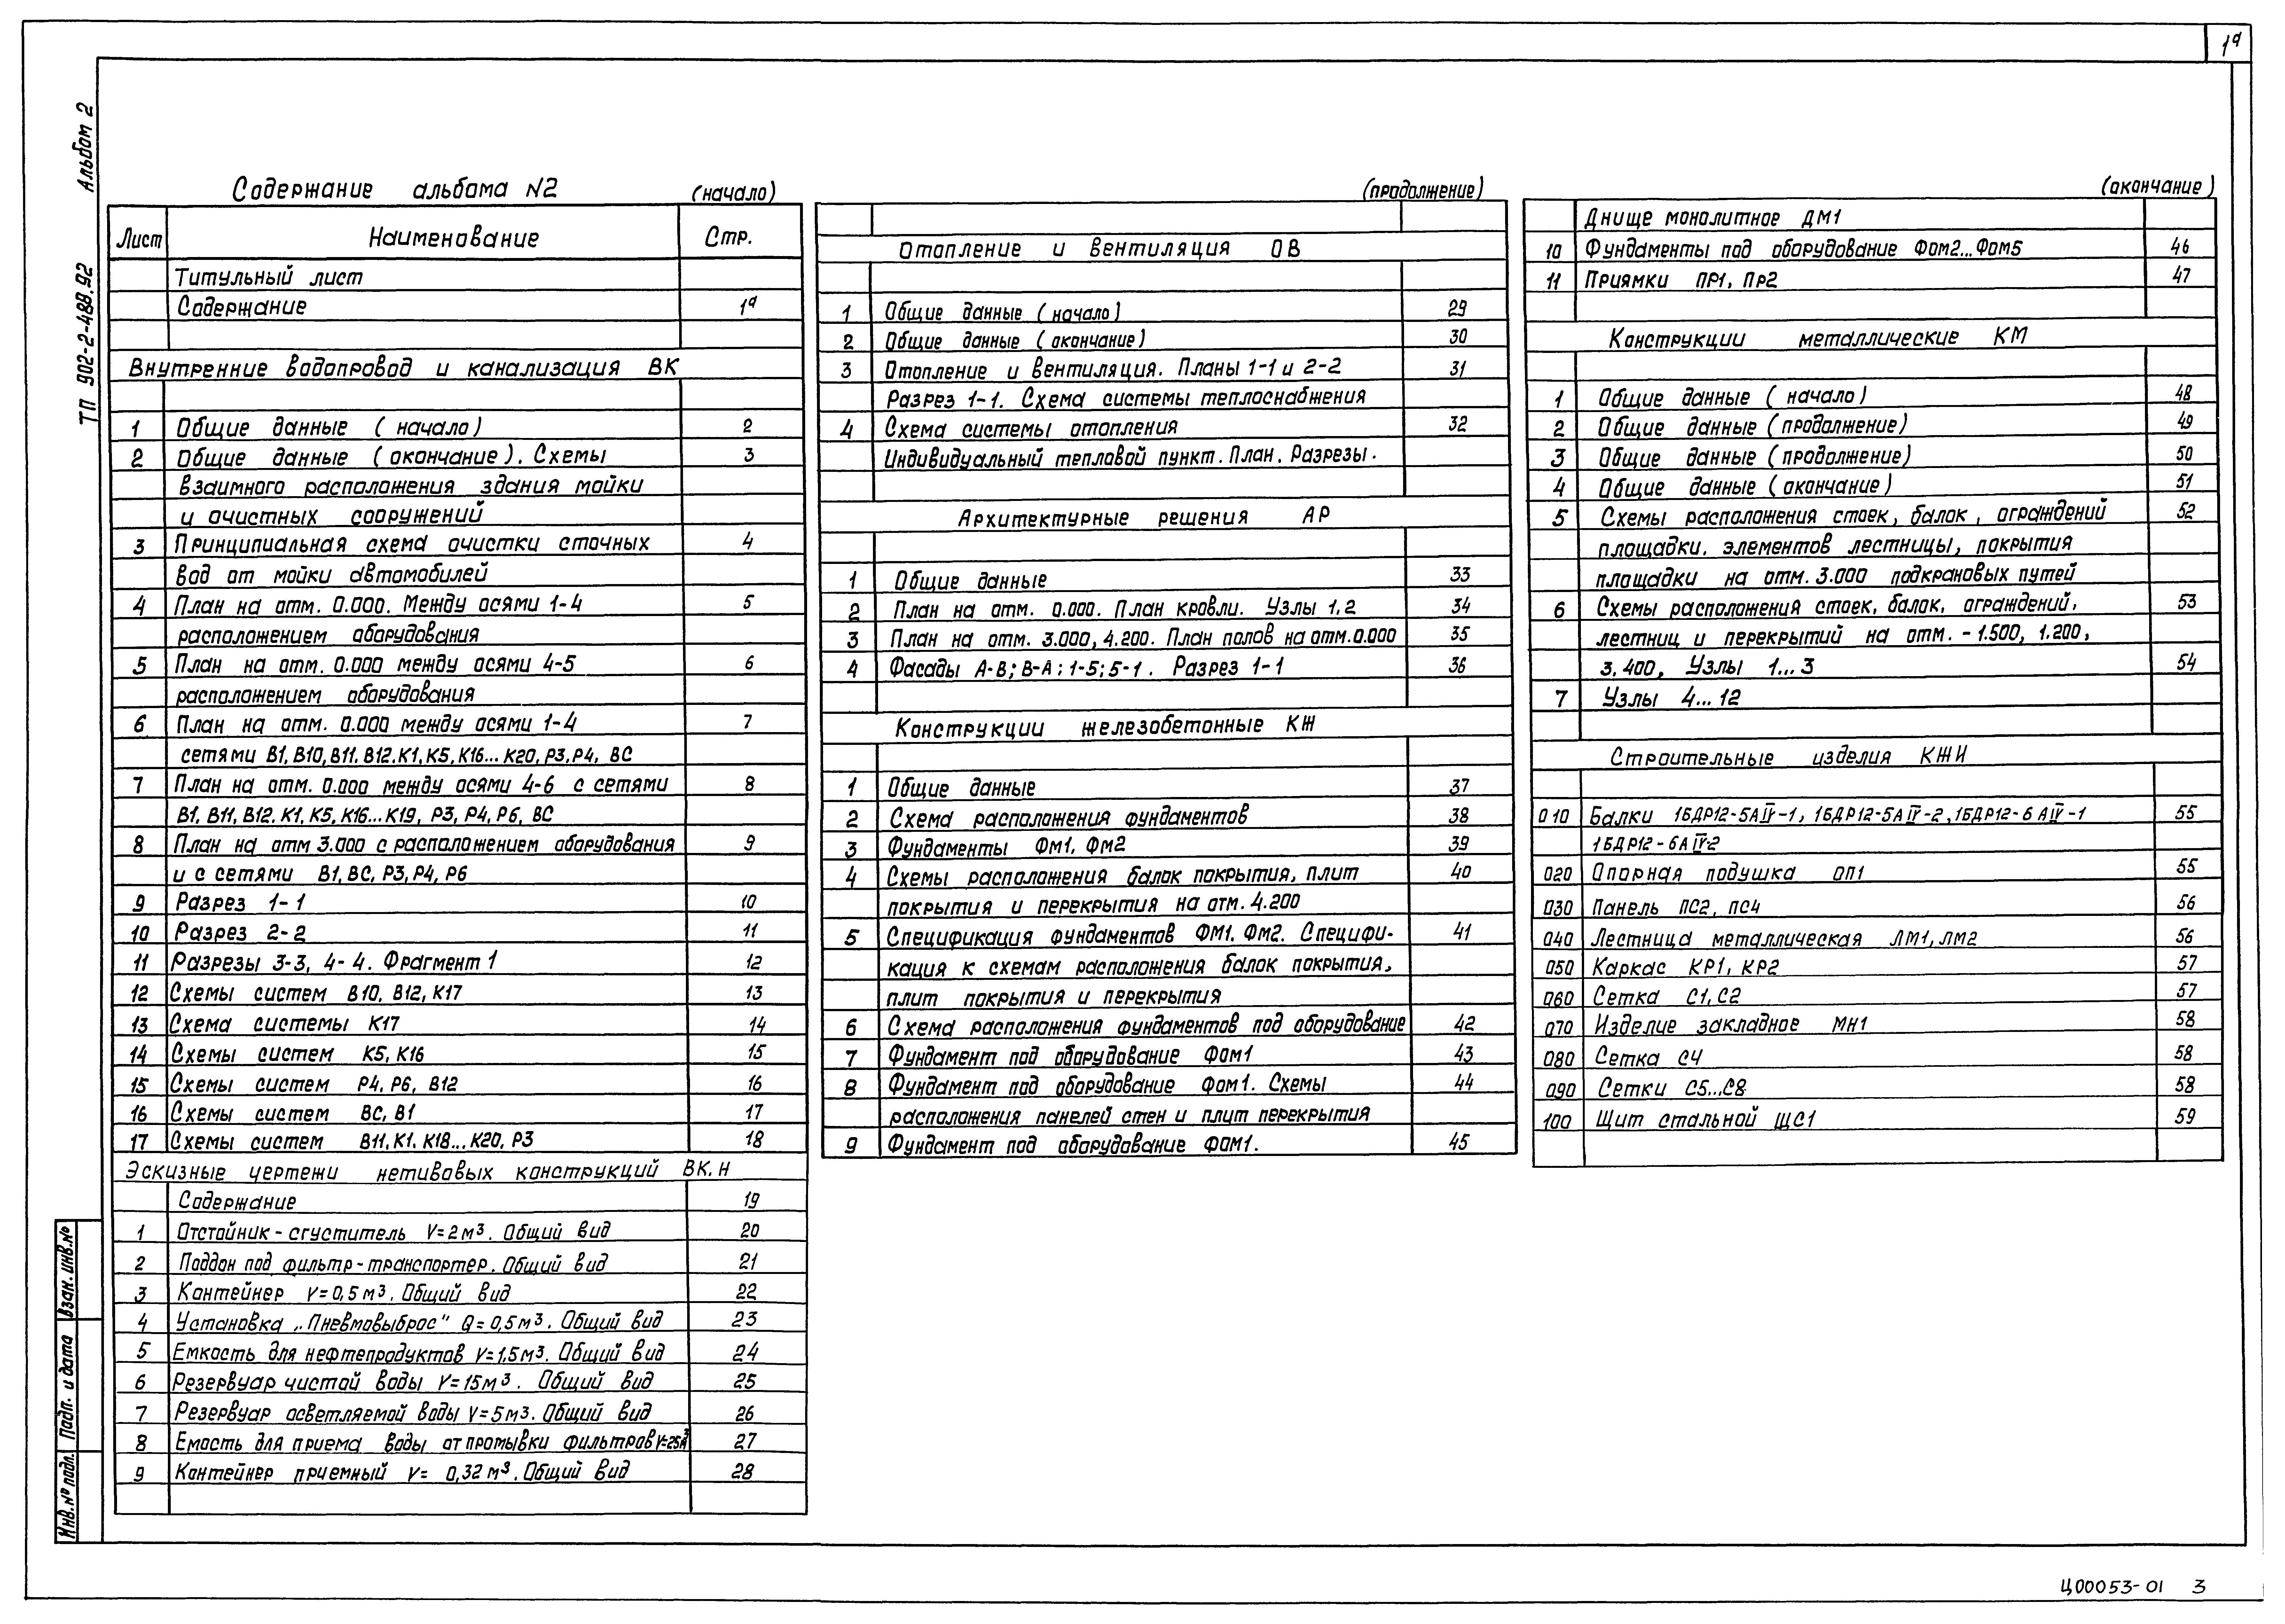 1а
Альбом 2
ТП 902-2-488.92
Содержание альбома N2 (начало)
Лист Наименование Стр.
Титульный лист
Содержание 1а
Внутренние водопровод и канализация ВК
1 Общие данные (начало) 2
2 Общие данные (окончание). Схемы 3
взаимного расположения здания мойки
и очистных сооружений
3 Принципиальная схема очистки сточных 4
вод от мойки автомобилей
4 План на отм. 0.000. Между осями 1-4 5
расположением оборудования
5 План на отм. 0.000 между осями 4-5 6
расположением оборудования
6 План на отм. 0.000 между осями 1-4 7
сетями В1, В10, В11. В12. К1, К5, К16... К20, Р3, Р4, ВС
7 План на отм. 0.000 между осями 4-6 с сетями 8
В1, В11, В12. К1, К5, К16...К19, Р3, Р4, Р6, ВС
8 План на отм 3.000 с расположением оборудования 9
и с сетями В1, ВС, Р3, Р4, Р6
9 Разрез 1-1 10
10 Разрез 2-2 11
11 Разрезы 3-3, 4-4. Фрагмент 1 12
12 Схемы систем В10, В12, К17 13
13 Схема системы К17 14
14 Схемы систем К5, К16 15
15 Схемы систем Р4, Р6, В12 16
16 Схемы систем ВС, В1 17
17 Схемы систем В11, К1. К18... К20, Р3 18
Эскизные чертежи нетивовых конструкций ВК.Н
Содержание 19
1 Отстойник-сгуститель V=2м³. Общий вид 20
2 Поддон под фильтр-транспортер. Общий вид 21
3 Контейнер V=0,5м³. Общий вид 22
4 Установка „Пневмовыброс" Q=0,5м³. Общий вид 23
5 Емкость для нефтепродуктов V=1,5м³. Общий вид 24
6 Резервуар чистой воды V=15м³. Общий вид 25
7 Резервуар осветляемой воды V=5м³. Общий вид 26
8 Емость для приема воды от промывки фильтров V=25м³ 27
9 Контейнер приемный V= 0,32м³. Общий вид 28
(продолжение)
Отопление и вентиляция ОВ
1 Общие данные (начало) 29
2 Общие данные (окончание) 30
3 Отопление и вентиляция. Планы 1-1 и 2-2 31
Разрез 1-1. Схема системы теплоснабжения
4 Схема системы отопления 32
Индивидуальный тепловой пункт. План. Разрезы.
Архитектурные решения АР
1 Общие данные 33
2 План на отм. 0.000. План кровли. Узлы 1,2 34
3 План на отм. 3.000, 4.200. План полов на отм.0.000 35
4 Фасады А-В; В-А; 1-5; 5-1. Разрез 1-1 36
Конструкции железобетонные КЖ
1 Общие данные 37
2 Схема расположения фундаментов 38
3 Фундаменты Фм1, Фм2 39
4 Схемы расположения балок покрытия, плит 40
покрытия и перекрытия на отм. 4.200
5 Спецификация фундаментов ФМ1. Фм2. Специфи- 41
кация к схемам расположения балок покрытия,
плит покрытия и перекрытия
6 Схема расположения фундаментов под оборудование 42
7 Фундамент под оборудование Фом1 43
8 Фундамент под оборудование Фом1. Схемы 44
расположения панелей стен и плит перекрытия
9 Фундамент под оборудование ФОМ1. 45
(окончание)
Днище монолитное ДМ1
10 Фундаменты под оборудование Фом2...Фом5 46
11 Приямки ПР1, Пр2 47
Конструкции металлические КМ
1 Общие данные (начало) 48
2 Общие данные (продолжение) 49
3 Общие данные (продолжение) 50
4 Общие данные (окончание) 51
5 Схемы расположения стоек, балок, ограждений 52
площадки. элементов лестницы, покрытия
площадки на отм. 3.000 подкрановых путей
6 Схемы расположения стоек, балок, ограждений, 53
лестниц и перекрытий на отм. -1.500, 1.200,
3,400, Узлы 1...3 54
7 Узлы 4...12
Строительные изделия КЖИ
010 Балки 1БДР12-5АIV-1, 1БДР12-5АIV-2, 1БДР12-6АIV-1 55
1БДР12-6АIV-2
020 Опорная подушка ОП1 55
030 Панель ПС2, ПС4 56
040 Лестница металлическая ЛМ1, ЛМ2 56
050 Каркас КР1, КР2 57
060 Сетка С1, С2 57
070 Изделие закладное МН1 58
080 Сетка С4 58
090 Сетки С5...С8 58
100 Щит стальной ЩС1 59
Взам. инв.№
Подп. и дата
Инв. № подл.
Ц00053-01 3